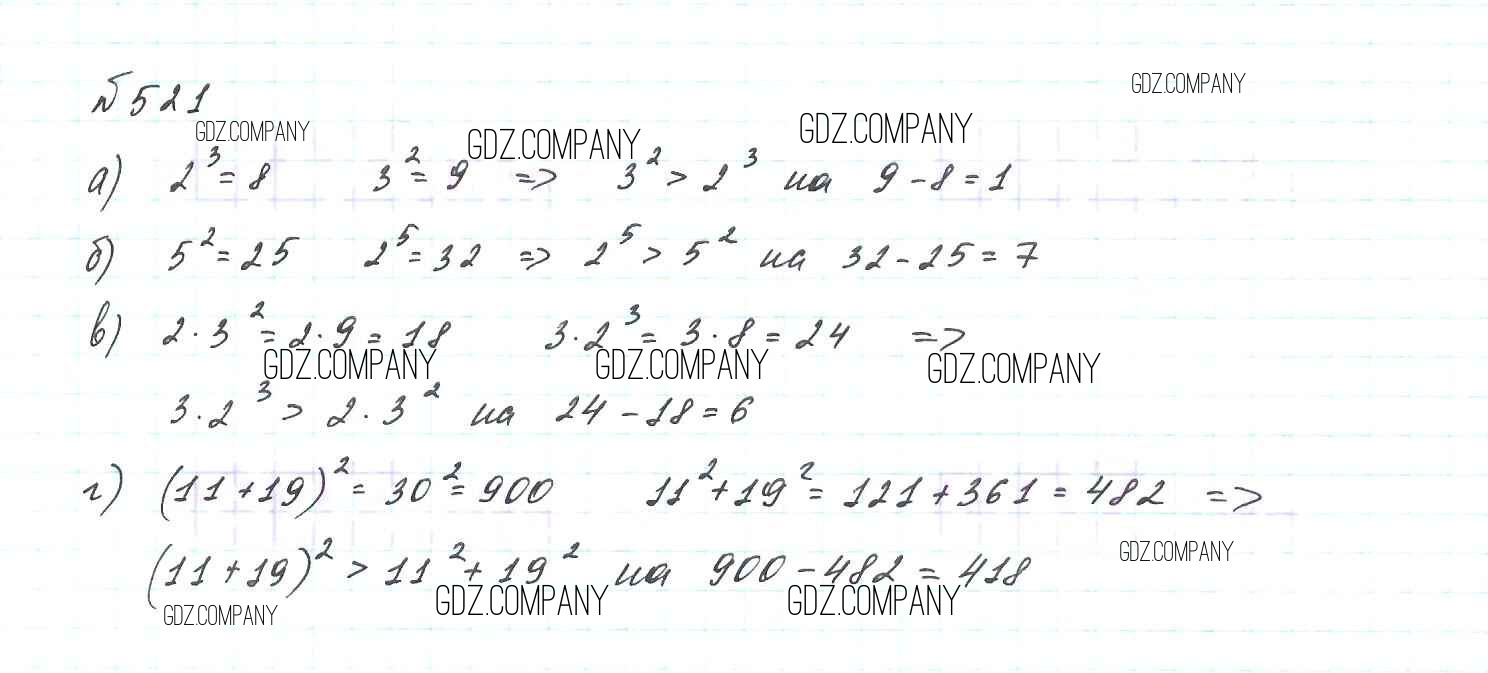 № 521
GDZ.COMPANY
GDZ.COMPANY GDZ.COMPANY GDZ.COMPANY
а) 2³ = 8 3² = 9 => 3² > 2³ на 9 - 8 = 1
б) 5² = 25 2⁵ = 32 => 2⁵ > 5² на 32 - 25 = 7
в) 2 · 3² = 2 · 9 = 18 3 · 2³ = 3 · 8 = 24 =>
GDZ.COMPANY GDZ.COMPANY GDZ.COMPANY
3 · 2³ > 2 · 3² на 24 - 18 = 6
г) (11 + 19)² = 30² = 900 11² + 19² = 121 + 361 = 482 =>
GDZ.COMPANY
(11 + 19)² > 11² + 19² на 900 - 482 = 418
GDZ.COMPANY GDZ.COMPANY GDZ.COMPANY